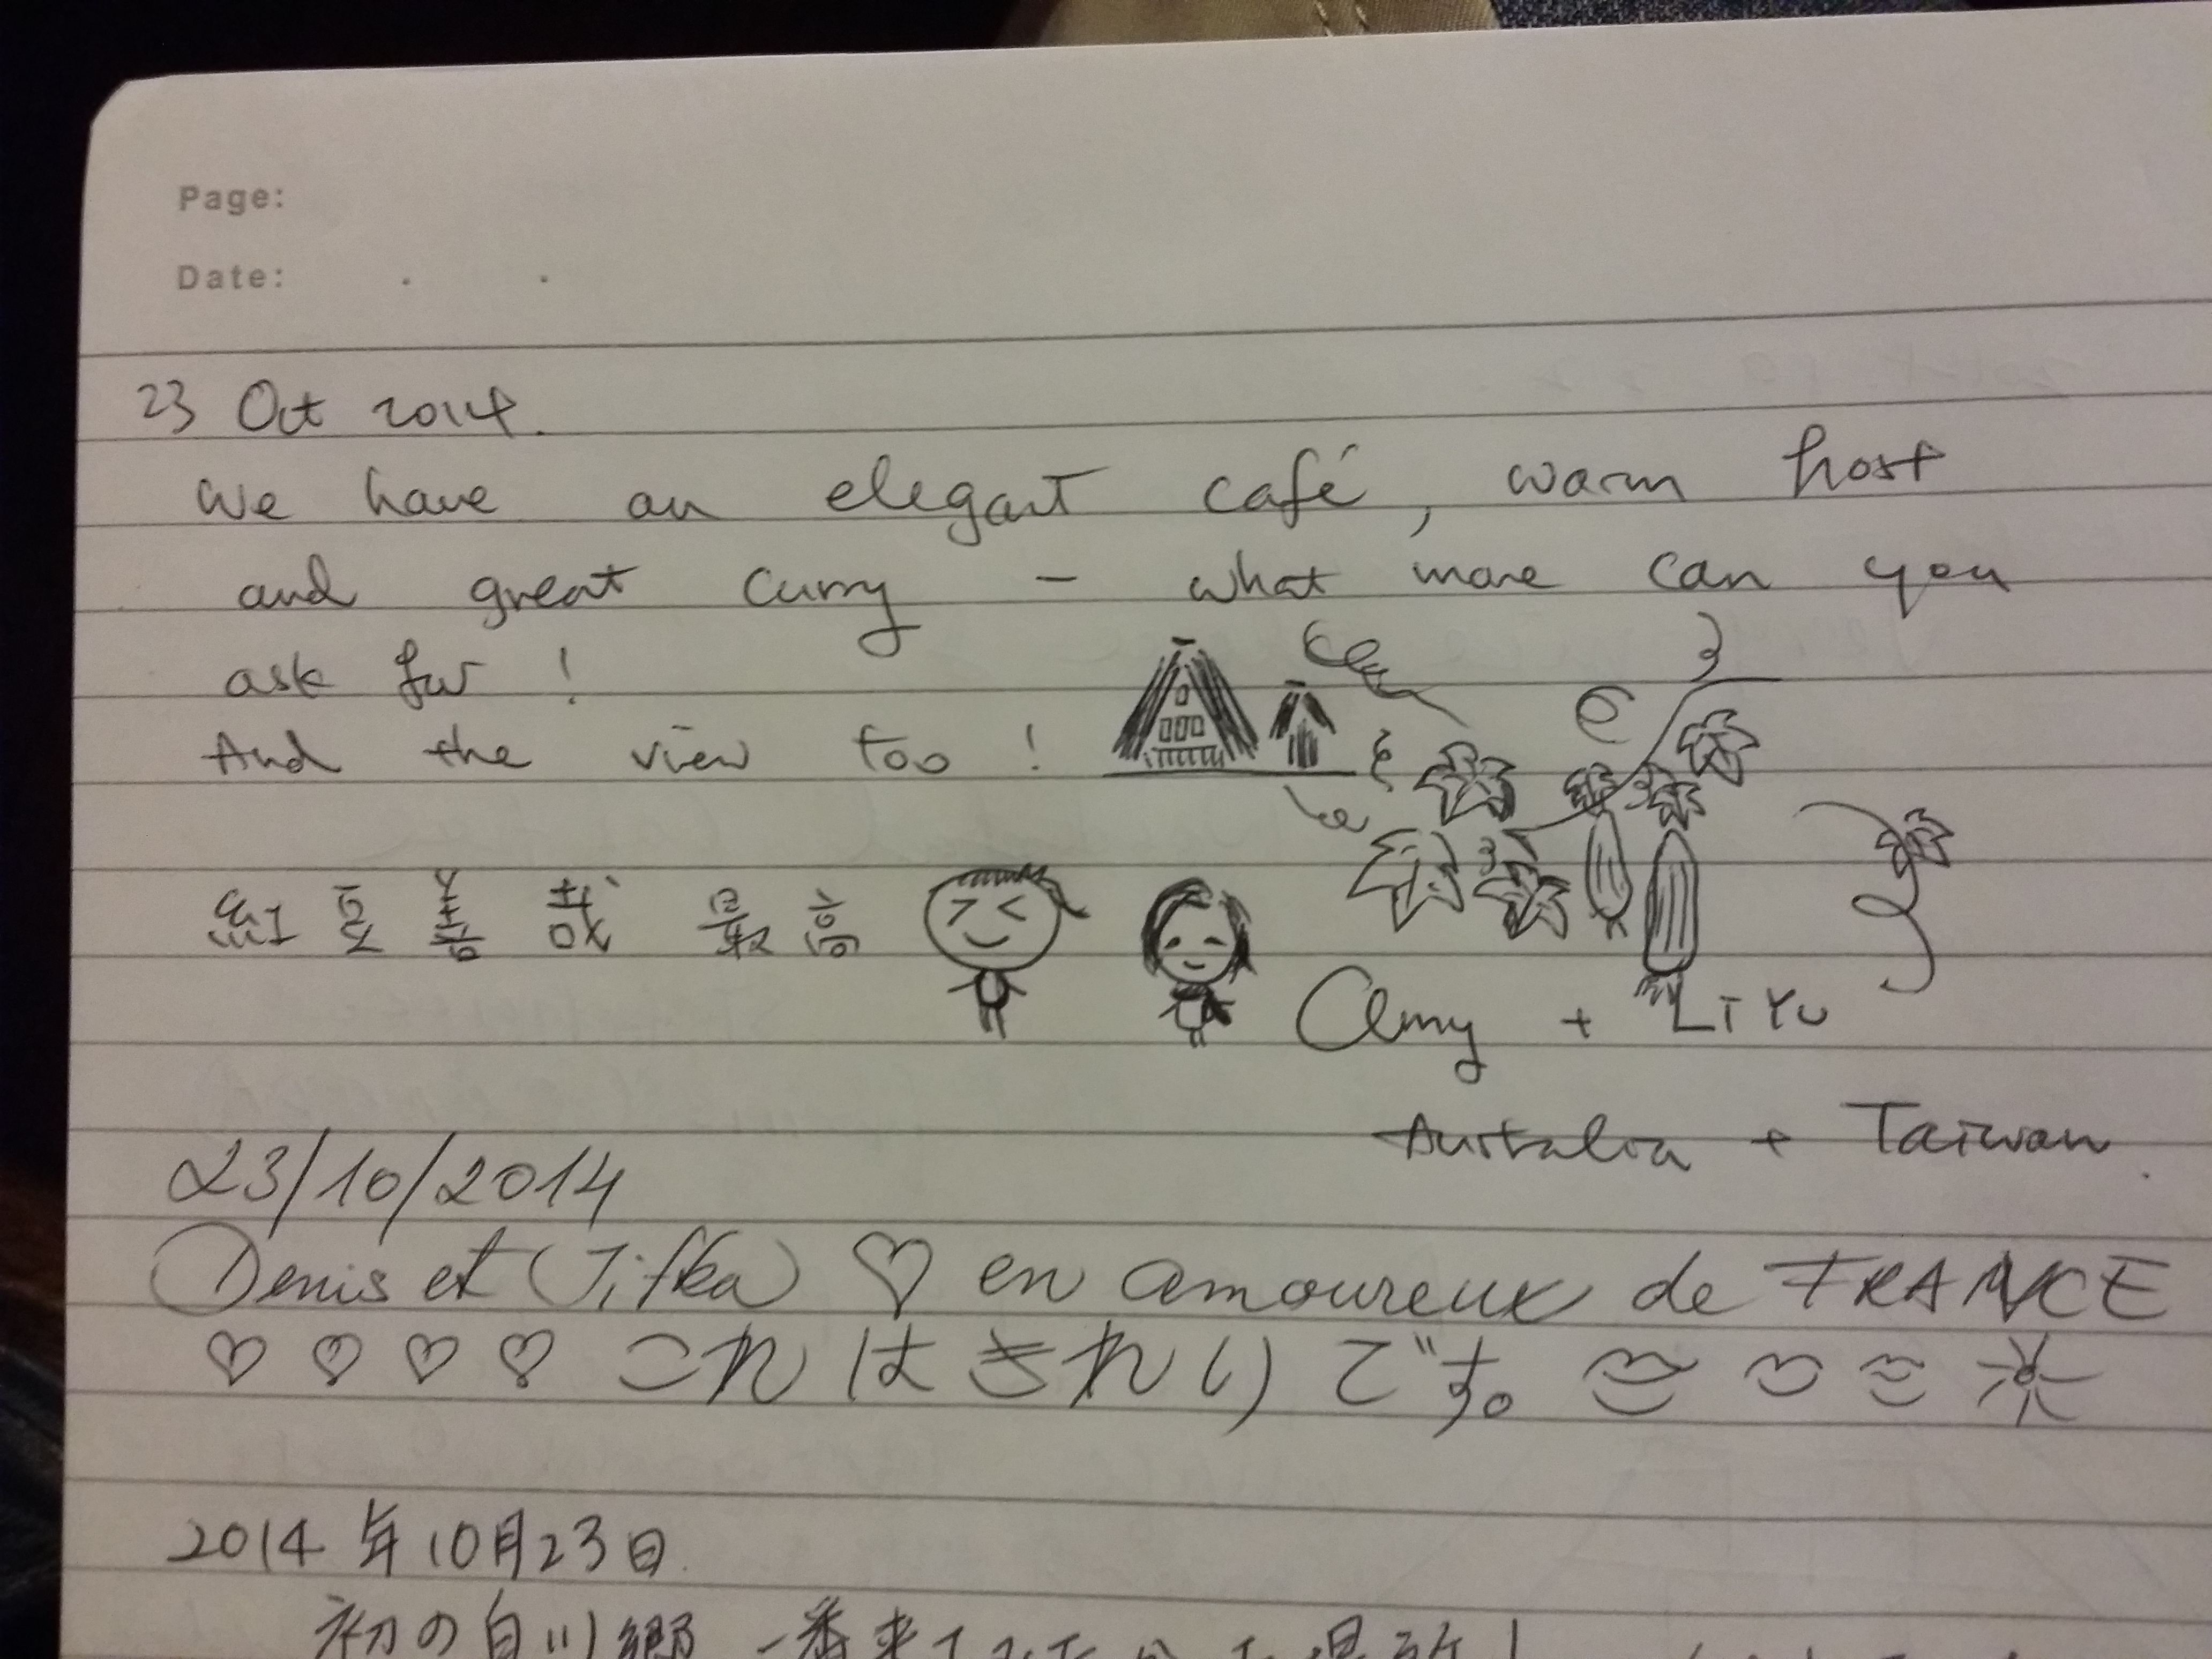 Page:
Date: . .
23 Oct 2014.
We have an elegant café, warm host
and great curry - what more can you
ask for !
And the view too !
最高
Amy + Li Yu
Australia + Taiwan.
23/10/2014
Denis et Jitka ♡ en amoureux de FRANCE
♡ ♡ ♡ ♡ これはきれいです。
2014年10月23日
初の白川郷 一番来てみたかった場所!